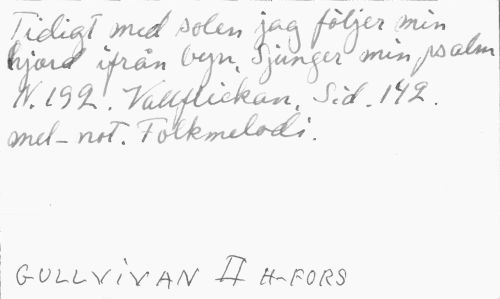 Tidigt med solen jag följer min
hjord ifrån byn, Sjunger min psalm
N. 192. Vallflickan, Sid. 142.
mel-not. Folkmelodi.
GULLVIVAN II H-FORS